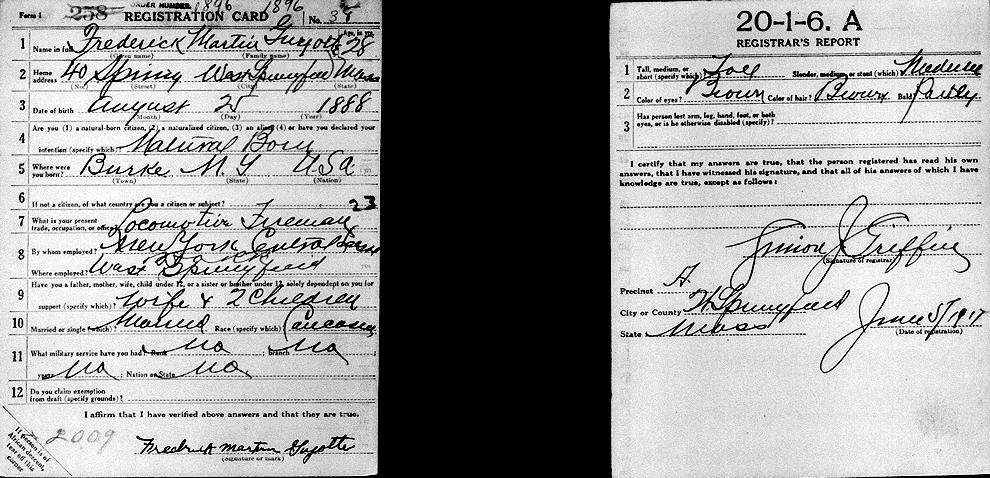 Form 1 258 ORDER NUMBER 1896 1896 REGISTRATION CARD No. 34
1 Name in full Frederick Martin Guyotte Age, in yrs. 28
(Given name) (Family name)
2 Home address 40 Spring West Springfield Mass
(No.) (Street) (City) (State)
3 Date of birth August 25 1888
(Month) (Day) (Year)
4 Are you (1) a natural-born citizen, (2) a naturalized citizen, (3) an alien, (4) or have you declared your
intention (specify which)? Natural Born
5 Where were you born? Burke N.Y USA
(Town) (State) (Nation)
6 If not a citizen, of what country are you a citizen or subject?
7 What is your present trade, occupation, or office? Locomotive Fireman 23
8 By whom employed? New York Central
Where employed? West Springfield
9 Have you a father, mother, wife, child under 12, or a sister or brother under 12, solely dependent on you for
support (specify which)? Wife & 2 Children
10 Married or single (which)? Married Race (specify which)? Caucasian
11 What military service have you had? Rank No ; branch No ;
years No ; Nation or State No
12 Do you claim exemption from draft (specify grounds)?
I affirm that I have verified above answers and that they are true.
2009
Frederick Martin Guyotte
(Signature or mark)
If person is of
African descent,
tear off this
corner
20-1-6. A
REGISTRAR'S REPORT
1 Tall, medium, or short (specify which)? Tall Slender, medium, or stout (which)? Medium
2 Color of eyes? Brown Color of hair? Brown Bald? Partly
3 Has person lost arm, leg, hand, foot, or both
eyes, or is he otherwise disabled (specify)?
I certify that my answers are true, that the person registered has read his own
answers, that I have witnessed his signature, and that all of his answers of which I have
knowledge are true, except as follows:
Simon J Griffin
(Signature of registrar)
Precinct A.
City or County W Springfield
State Mass
June 5/1917
(Date of registration)